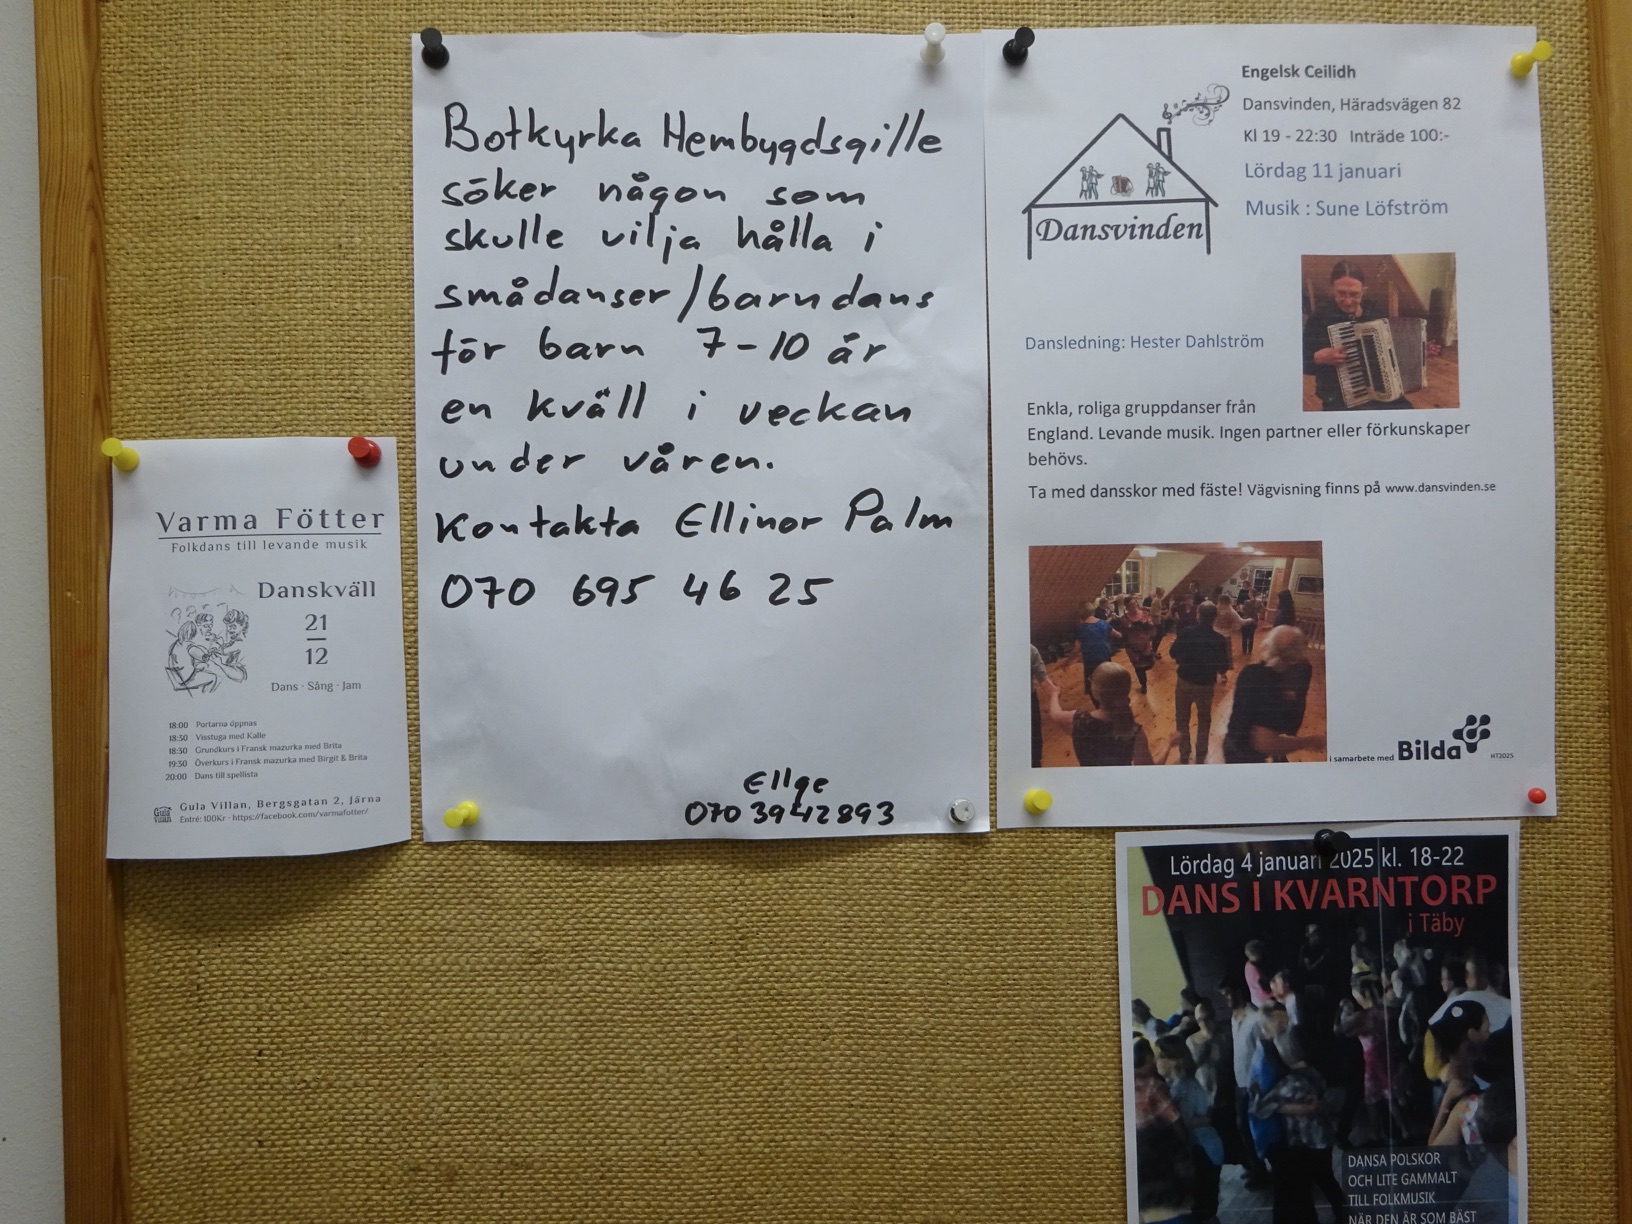 Varma Fötter
Folkdans till levande musik
Danskväll
21
12
Dans · Sång · Jam
18:00 Portarna öppnas
18:30 Visstuga med Kalle
18:30 Grundkurs i Fransk mazurka med Brita
19:30 Överkurs i Fransk mazurka med Birgit & Brita
20:00 Dans till spellista
Gula Villan
Gula Villan, Bergsgatan 2, Järna
Entré: 100Kr · https://facebook.com/varmafotter/
Botkyrka Hembygdsgille
söker någon som
skulle vilja hålla i
smådanser/barndans
för barn 7-10 år
en kväll i veckan
under våren.
Kontakta Ellinor Palm
070 695 46 25
Ellge
070 3942893
Engelsk Ceilidh
Dansvinden, Häradsvägen 82
Kl 19 - 22:30 Inträde 100:-
Lördag 11 januari
Musik : Sune Löfström
Dansvinden
Dansledning: Hester Dahlström
Enkla, roliga gruppdanser från
England. Levande musik. Ingen partner eller förkunskaper
behövs.
Ta med dansskor med fäste! Vägvisning finns på www.dansvinden.se
i samarbete med Bilda
HT2025
Lördag 4 januari 2025 kl. 18-22
DANS I KVARNTORP
i Täby
DANSA POLSKOR
OCH LITE GAMMALT
TILL FOLKMUSIK
NÄR DEN ÄR SOM BÄST